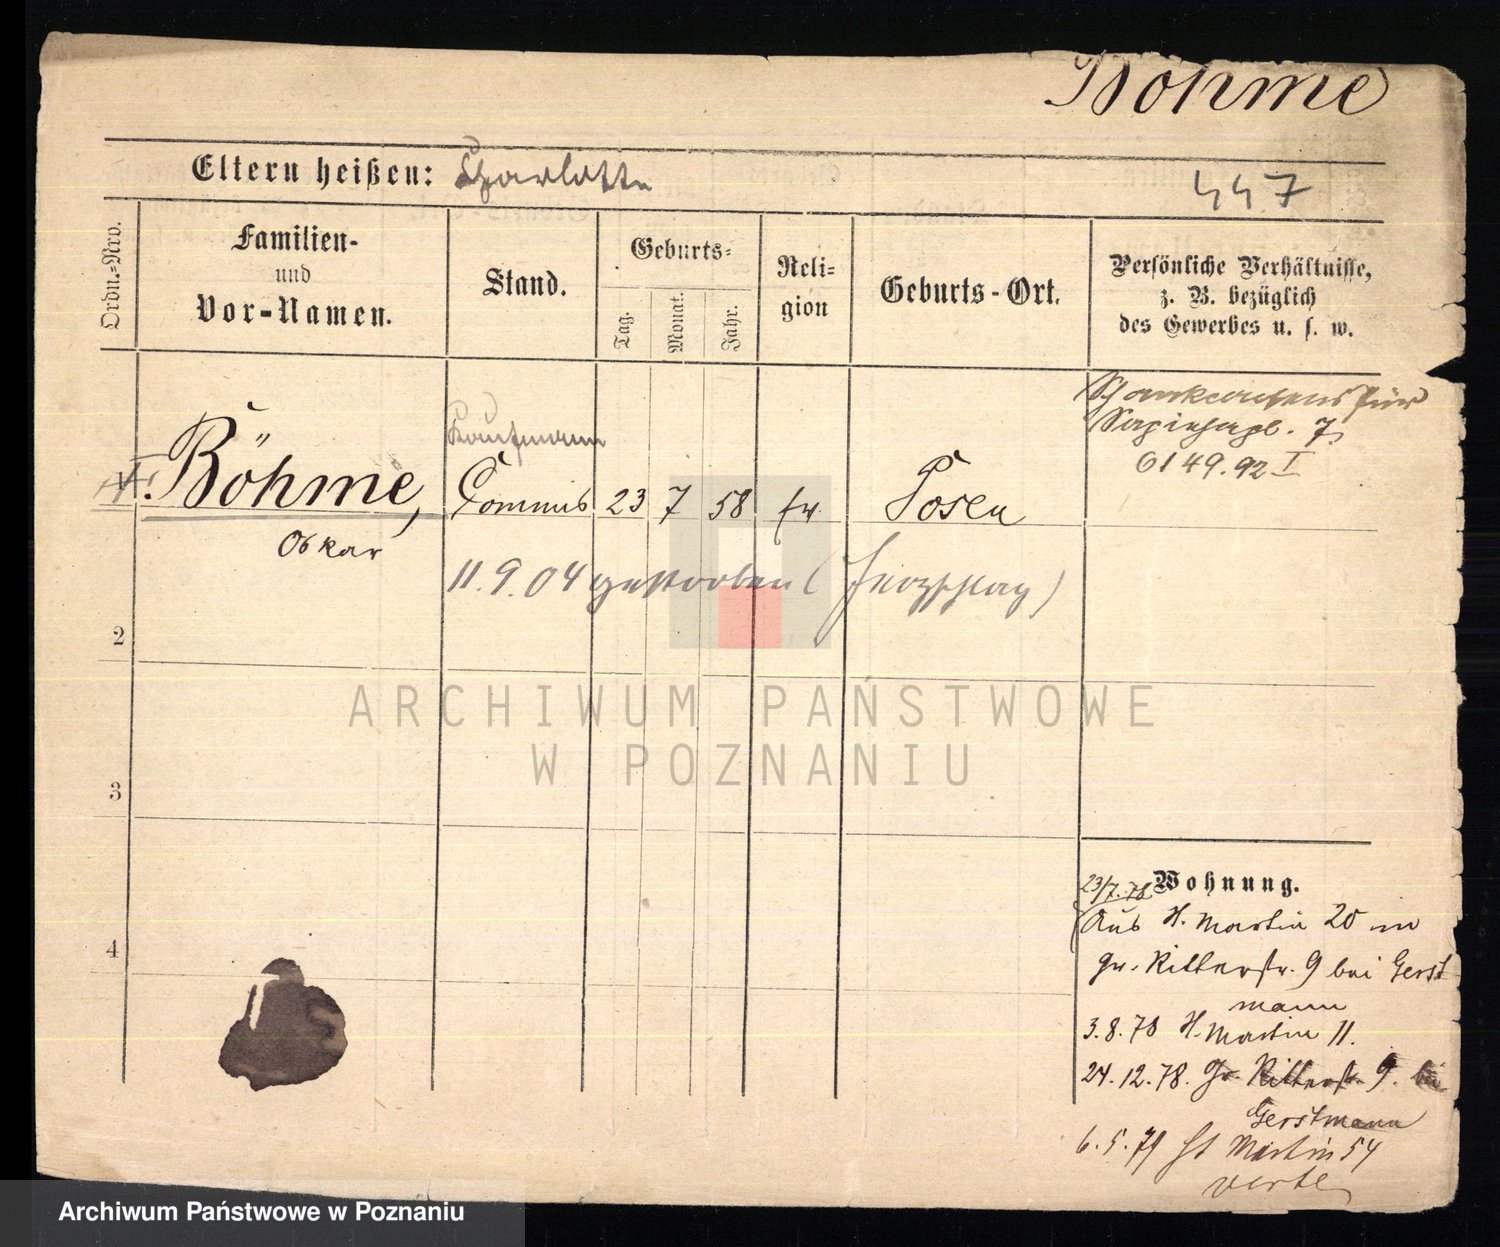 Böhme
Eltern heißen: Charlotte
447
Ordn.=Nro.
Familien-
und
Vor-Namen.
Stand.
Geburts=
Tag.
Monat.
Jahr.
Reli=
gion
Geburts-Ort.
Persönliche Verhältnisse,
z. B. bezüglich
des Gewerbes u. s. w.
Schankconsens für
Sapiehapl. 7,
6149.92 I
Kaufmann
1. Böhme, Commis 23 7 58 Posen
Oskar
11.9.04 gestorben (Herzschlag)
2
3
4
Wohnung.
23/7.78
Aus St. Martin 20 in
gr. Ritterstr. 9 bei Gerst
mann
3.8.78 St. Martin 11.
24.12.78. Gr. Ritterstr. 9. bei
Gerstmann
6.5.79 St Martin 54
verte
ARCHIWUM PAŃSTWOWE
W POZNANIU
Archiwum Państwowe w Poznaniu